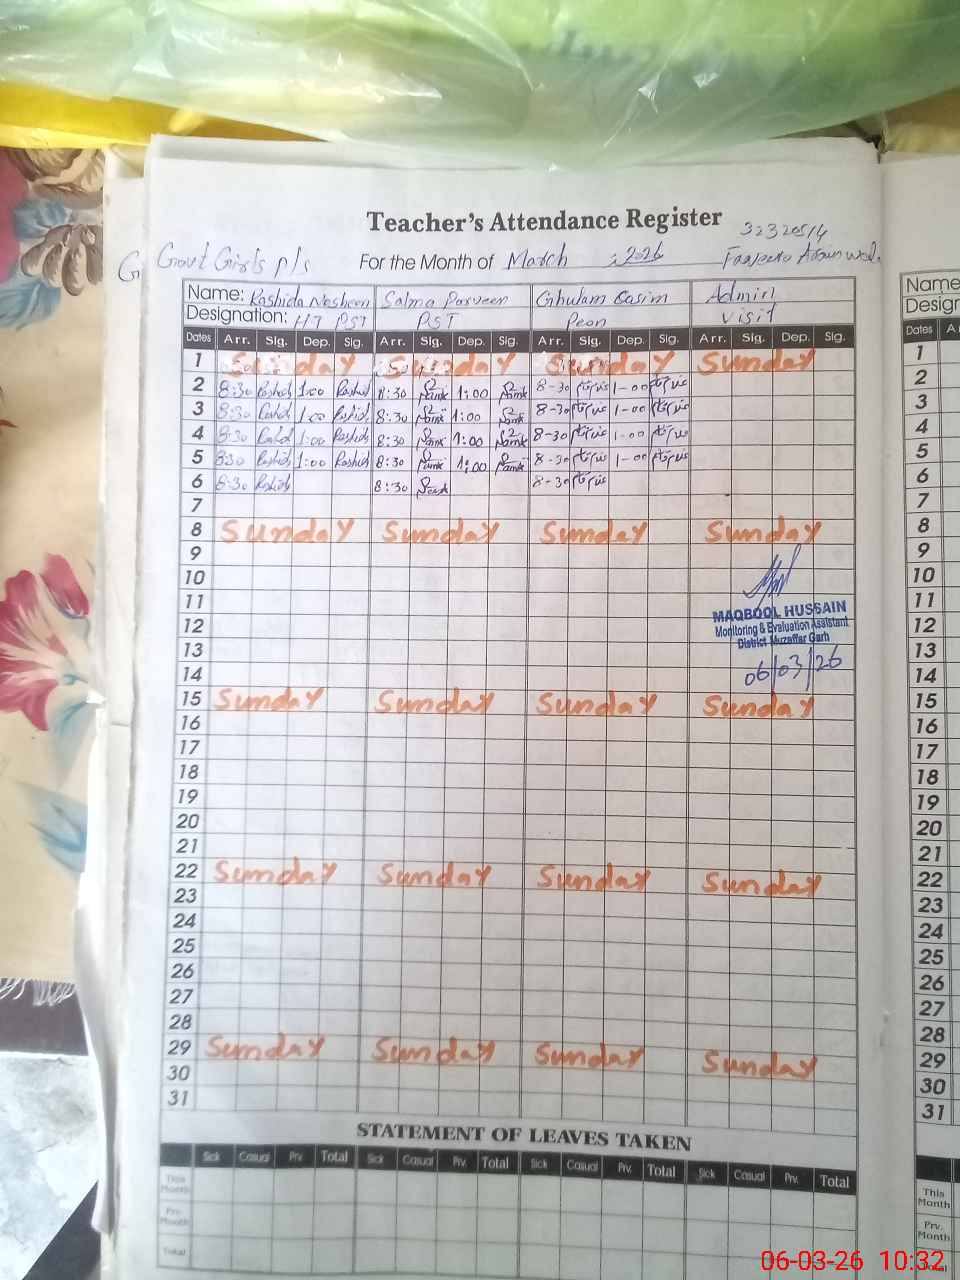 Teacher's Attendance Register
32320514
Govt Girls P/s For the Month of March 2026
Name: Rashida Nosheen Salma Parveen Ghulam Qasim Admin
Designation: HT PST PST Peon Visit
Dates Arr. Sig. Dep. Sig. Arr. Sig. Dep. Sig. Arr. Sig. Dep. Sig. Arr. Sig. Dep. Sig.
1 Sunday Sunday Sunday Sunday
2 8:30 Rashid 1:00 Rashid 8:30 1:00 8-30 1-00
3 8:30 Rashid 1:00 Rashid 8:30 1:00 8-30 1-00
4 8:30 Rashid 1:00 Rashid 8:30 1:00 8-30 1-00
5 830 Rashid 1:00 Rashid 8:30 1:00 8-30 1-00
6 8:30 Rashid 8:30 8-30
7
8 Sunday Sunday Sunday Sunday
9
10
11
MAQBOOL HUSSAIN
12
Monitoring & Evaluation Assistant
District Muzaffar Garh
13
14
06/03/26
15 Sunday Sunday Sunday Sunday
16
17
18
19
20
21
22 Sunday Sunday Sunday Sunday
23
24
25
26
27
28
29 Sunday Sunday Sunday Sunday
30
31
STATEMENT OF LEAVES TAKEN
Sick Casual Prv. Total Sick Casual Prv. Total Sick Casual Prv. Total Sick Casual Prv. Total
This Month
Prv. Month
Total
Name
Design
Dates
1
2
3
4
5
6
7
8
9
10
11
12
13
14
15
16
17
18
19
20
21
22
23
24
25
26
27
28
29
30
31
This Month
Prv. Month
Total
06-03-26 10:32